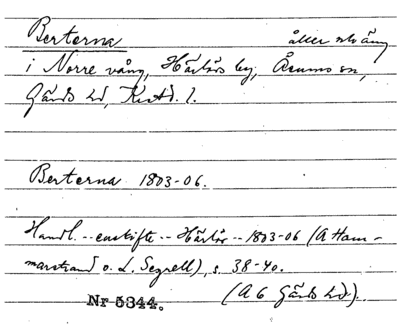 Berterna åker o äng
i Norre vång, Härlövs by, Åsums sn,
Gärds hd, Krist. l.
Berterna 1803-06.
Handl. -- enskifte -- Härlöv -- 1803-06 (A Ham-
marstrand o. L. Segrell), s. 38-40.
Nr 5344. (A 6 Gärds hd).